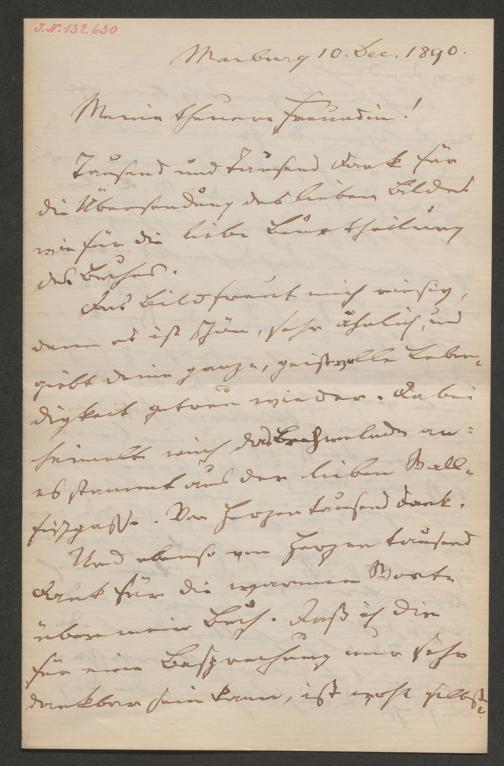 J.N. 132.630
Marburg 10. Dec. 1890.
Meine theuere Freundin!
Tausend und tausend Dank für
die Übersendung des lieben Bildes
wie für die liebe Beurtheilung
des Buches.
Das Bild freut mich riesig,
denn es ist schön, sehr ähnlich, und
giebt deine ganze, geistvolle Leben-
digkeit getreu wieder. Dabei
heimelt mich das an:
es stammt aus der lieben
Von Herzen tausend Dank.
Und ebenso von Herzen tausend
Dank für die warmen Worte
über mein Buch. Daß ich dir
für eine Besprechung nur sehr
dankbar sein kann, ist wohl selbst-